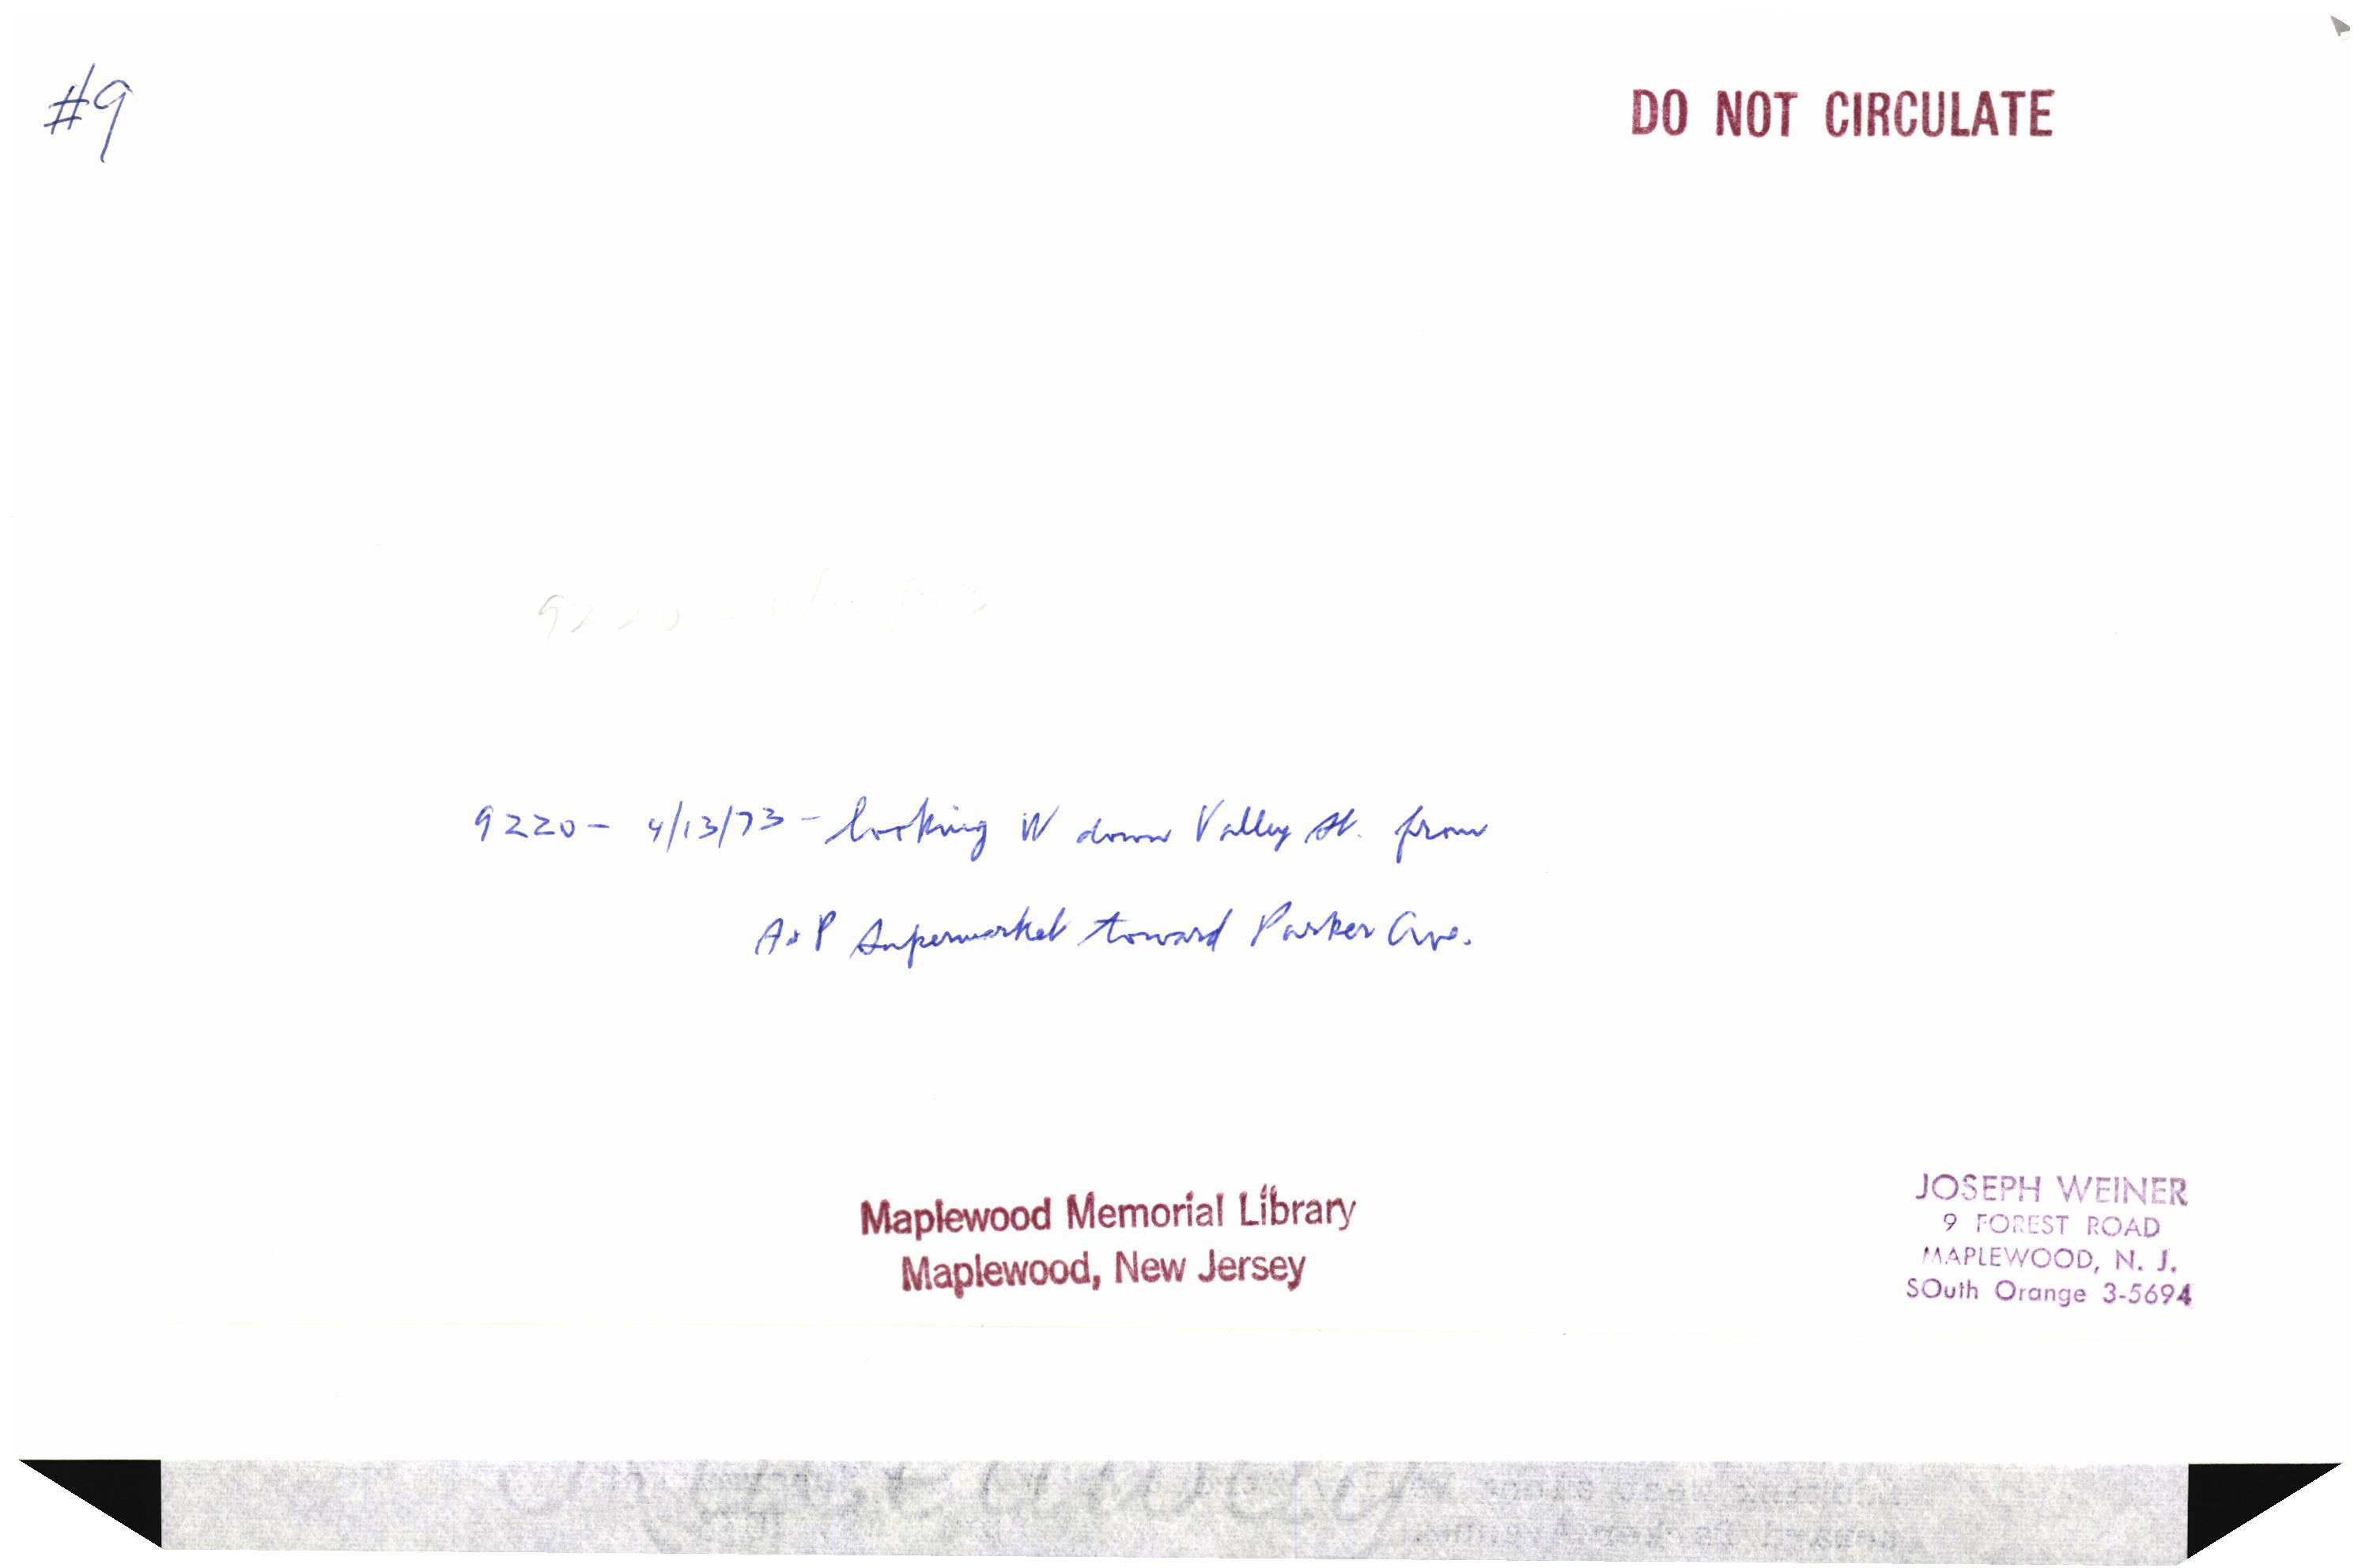 #9
DO NOT CIRCULATE
9220 -
9220 - 4/13/73 - looking W down Valley St. from
A & P Supermarket toward Parker Ave.
Maplewood Memorial Library
Maplewood, New Jersey
JOSEPH WEINER
9 FOREST ROAD
MAPLEWOOD, N. J.
SOuth Orange 3-5694